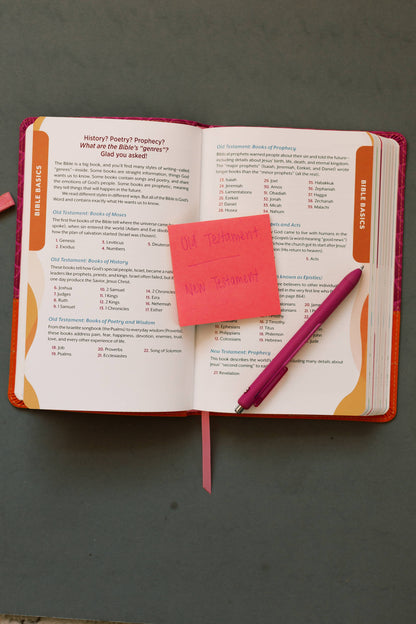 BIBLE BASICS
History? Poetry? Prophecy?
What are the Bible's "genres"?
Glad you asked!
The Bible is a big book, and you'll find many styles of writing—called
"genres"—inside. Some books are straight information, things God
wants us to know. Some books contain songs and poetry, and share
the emotions of God's people. Some books are prophetic, meaning
they tell things that will happen in the future.
We read different styles in different ways. But all of the Bible is God's
Word and contains exactly what He wants us to know.
Old Testament: Books of Moses
The first five books of the Bible tell where the universe came
spoke!), when sin entered the world (Adam and Eve
how the plan of salvation started (Israel was chosen).
1. Genesis 3. Leviticus 5. Deuteron
2. Exodus 4. Numbers
Old Testament: Books of History
These books tell how God's special people, Israel, became a
leaders like prophets and kings. Israel often failed, but
one day produce the Savior, Jesus Christ.
6. Joshua 10. 2 Samuel 14. 2 Chronicles
7. Judges 11. 1 Kings 15. Ezra
8. Ruth 12. 2 Kings 16. Nehemiah
9. 1 Samuel 13. 1 Chronicles 17. Esther
Old Testament: Books of Poetry and Wisdom
From the Israelite songbook (the Psalms) to everyday wisdom (Proverbs)
these books address pain, fear, happiness, devotion, enemies, trust,
love, and every other experience of life.
18. Job 20. Proverbs 22. Song of Solomon
19. Psalms 21. Ecclesiastes
Old Testament
New Testament
Old Testament: Books of Prophecy
Biblical prophets warned people about their sin and told the future—
including details about Jesus' birth, life, death, and eternal kingdom.
The "major prophets" (Isaiah, Jeremiah, Ezekiel, and Daniel) wrote
longer books than the "minor prophets" (all the rest).
23. Isaiah 29. Joel 35. Habakkuk
24. Jeremiah 30. Amos 36. Zephaniah
25. Lamentations 31. Obadiah 37. Haggai
26. Ezekiel 32. Jonah 38. Zechariah
27. Daniel 33. Micah 39. Malachi
28. Hosea 34. Nahum
and Acts
God came to live with humans in the
Gospels (a word meaning "good news")
how the church got its start after Jesus'
(His return to heaven).
5. Acts
known as Epistles)
believers to other individual
page 864).
Ephesians
11. Philippians 17. Titus
12. Colossians 18. Philemon John
19. Hebrews Jude
New Testament: Prophecy
This book describes the including many details about
Jesus' "second coming" to
27. Revelation
BIBLE BASICS